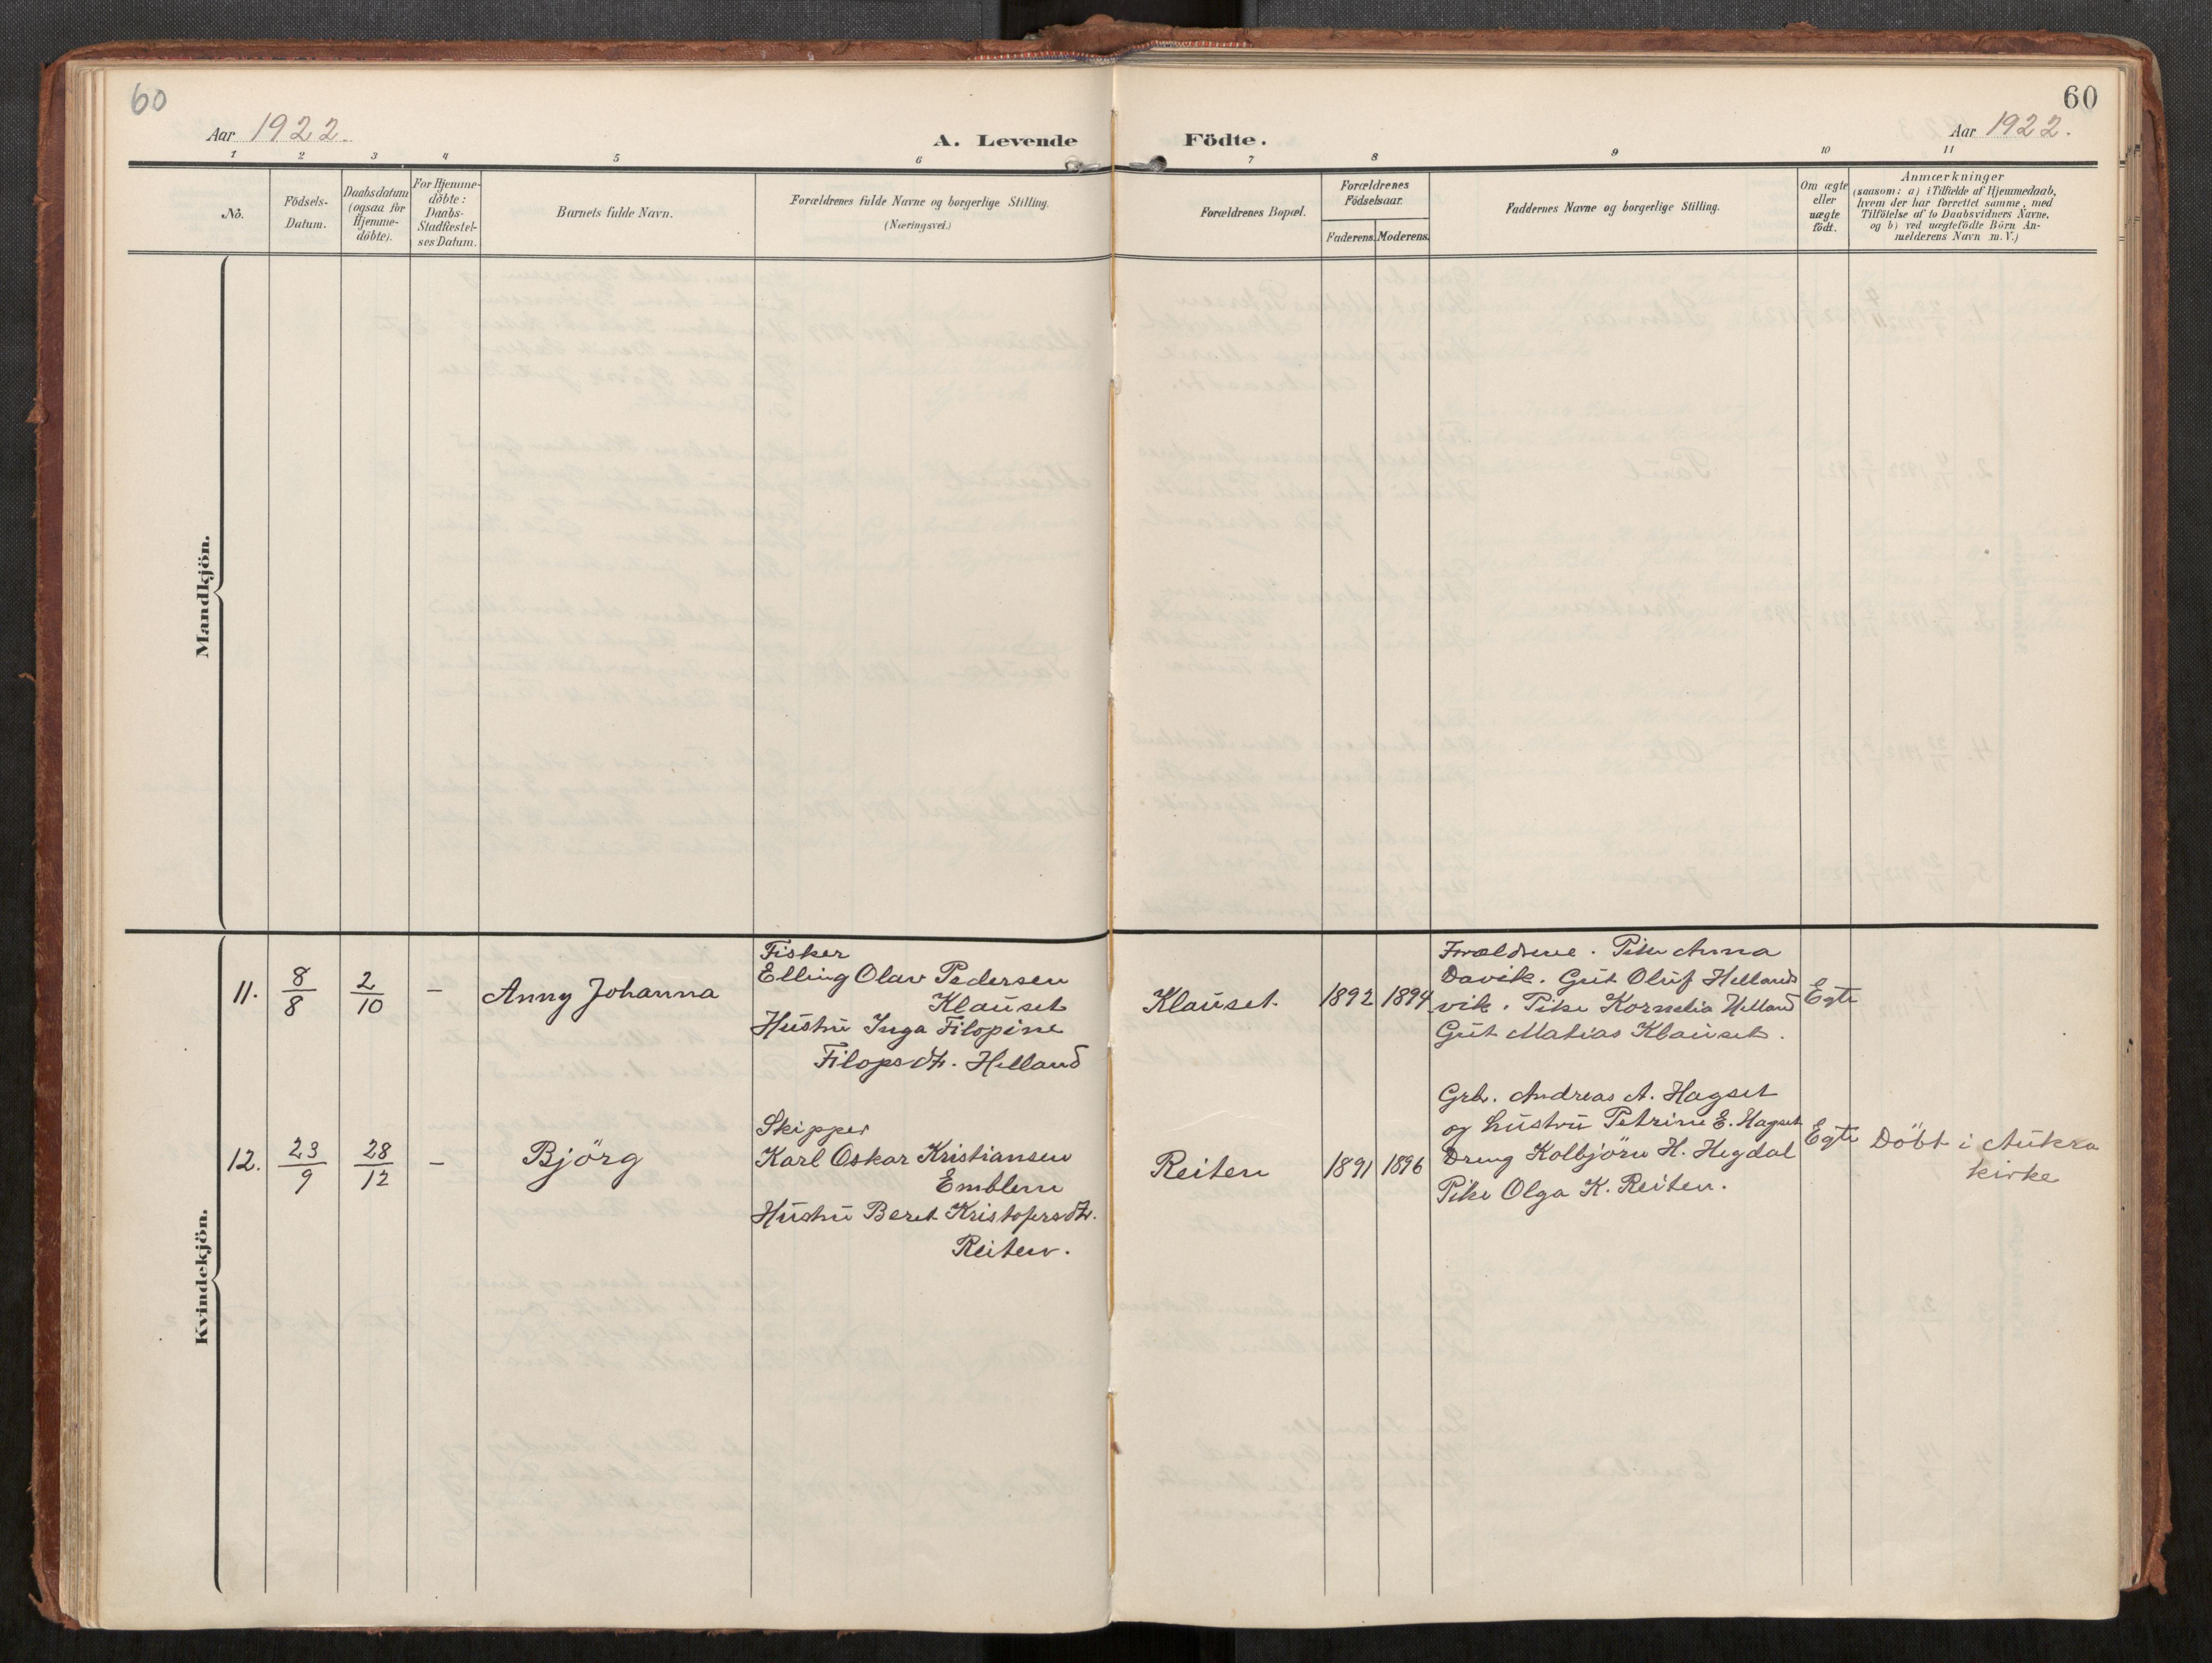 60
60
Aar 1922.
A. Levende Födte.
Aar 1922.
1 2 3 4 5 6 7 8 9 10 11
No.
Födsels-
Datum.
Daabsdatum
(ogsaa for
Hjemme-
döbte).
For Hjemme-
döbte:
Daabs-
Stadfestel-
ses Datum.
Barnets fulde Navn.
Forældrenes fulde Navne og borgerlige Stilling.
(Næringsvei.)
Forældrenes Bopæl.
Forældrenes
Födselsaar.
Faderens. Moderens.
Faddernes Navne og borgerlige Stilling.
Om ægte
eller
uægte
födt.
Anmærkninger
(saasom: a) i Tilfælde af Hjemmedaab,
hvem der har forrettet samme, med
Tilföielse af to Daabsvidners Navne,
og b) ved uægtefödte Börn An-
melderens Navn m. V.)
Mandkjön.
Kvindekjön.
11. 8/8 2/10 — Anny Johanna
Fisker
Elling Olav Pedersen
Klauset
Hustru Inga Filopine
Filopsdtr. Helland
Klauset. 1892 1894
Forældrene. Pike Anna
Davik. Gut Oluf Hellands
vik. Pike Kornelia Helland
Gut Matias Klauset.
Egte
12. 23/9 28/12 — Björg
Skipper
Karl Oskar Kristiansen
Emblem
Hustru Beret Kristofersdtr.
Reiten.
Reiten 1891 1896
Grb. Andreas A. Hagset
og hustru Petrine E. Hagset
Dreng Kolbjörn H. Hegdal
Pike Olga K. Reiten.
Egte
Döbt i Aukra
kirke